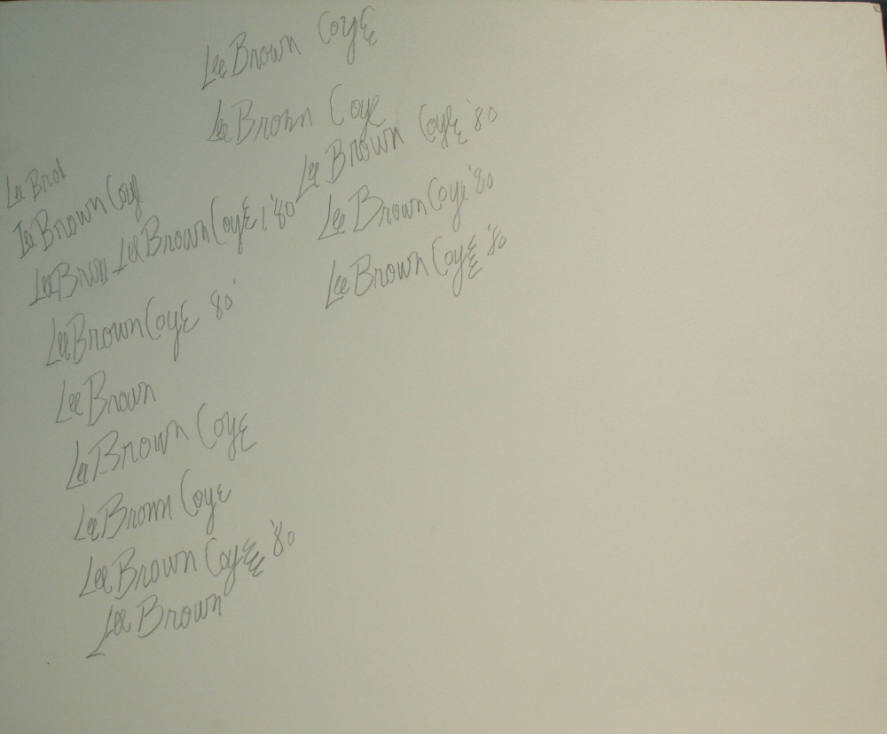 Lee Brown Coye
Lee Brown Coye
Lee Brown Coye '80
Lee Brown Coye '80
Lee Brown Coye '80
Lee Bro
Lee Brown Coye
Lee Brown Lee Brown Coye '80
Lee Brown Coye '80
Lee Brown
Lee Brown Coye
Lee Brown Coye
Lee Brown Coye '80
Lee Brown